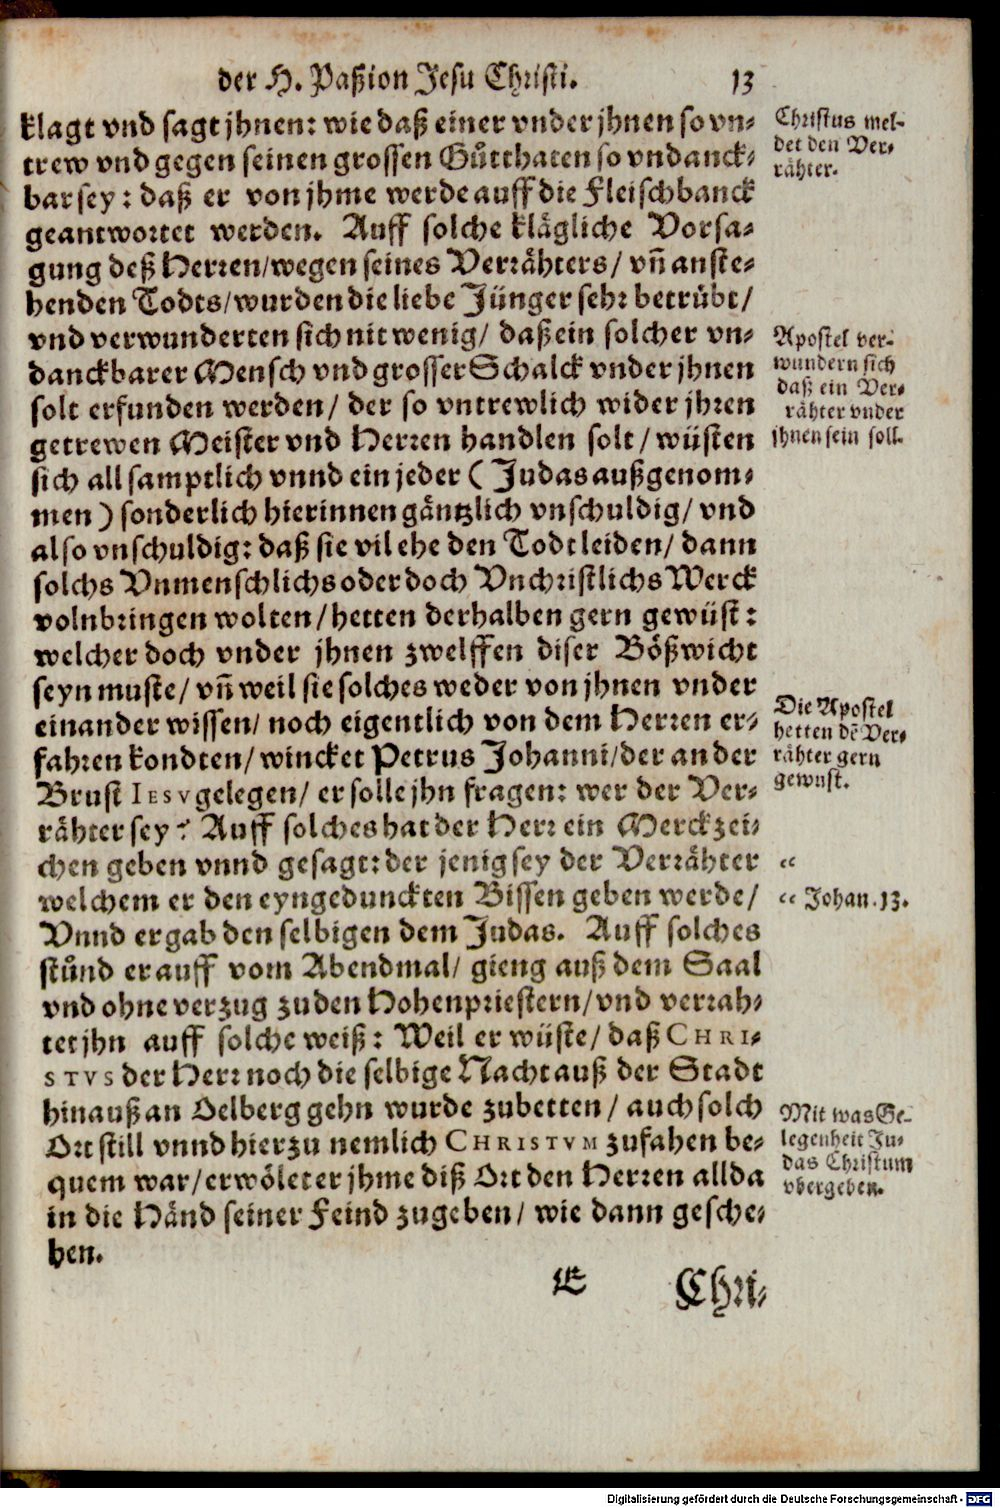 der H. Paßion Jesu Christi. 13
klagt vnd sagt jhnen: wie daß einer vnder jhnen so vn-
trew vnd gegen seinen grossen Gůtthaten so vndanck-
bar sey: daß er von jhme werde auff die Fleischbanck
geantwortet werden. Auff solche klägliche Vorsa-
gung deß Herren/wegen seines Verrähters/ vñ anste-
henden Todts/wurden die liebe Jünger sehr betrůbt/
vnd verwunderten sich nit wenig/ daß ein solcher vn-
danckbarer Mensch vnd grosser Schalck vnder jhnen
solt erfunden werden/ der so vntrewlich wider jhren
getrewen Meister vnd Herren handlen solt/ wüsten
sich all samptlich vnnd ein jeder (Judas außgenom-
men) sonderlich hierinnen gäntzlich vnschuldig/ vnd
also vnschuldig: daß sie vil ehe den Todt leiden/ dann
solchs Vnmenschlichs oder doch Vnchristlichs Werck
volnbringen wolten/ hetten derhalben gern gewüst:
welcher doch vnder jhnen zwelffen diser Bößwicht
seyn muste/ vñ weil sie solches weder von jhnen vnder
einander wissen/ noch eigentlich von dem Herren er-
fahren kondten/ wincket Petrus Johanni/der an der
Brust IESV gelegen/ er solle jhn fragen: wer der Ver-
rähter sey? Auff solches hat der Herr ein Merckzei-
chen geben vnnd gesagt: der jenig sey der Verrähter
welchem er den eyngedunckten Bissen geben werde/
Vnnd er gab den selbigen dem Judas. Auff solches
stůnd er auff vom Abendmal/ gieng auß dem Saal
vnd ohne verzug zu den Hohenpriestern/ vnd verrah-
tet jhn auff solche weiß: Weil er wüste/ daß CHRI-
STVS der Herr noch die selbige Nacht auß der Stadt
hinauß an Oelberg gehn wurde zubetten/ auch solch
Ort still vnnd hierzu nemlich CHRISTVM zufahen be-
quem war/ erwölet er jhme diß Ort den Herren allda
in die Händ seiner Feind zugeben/ wie dann gesche-
hen.
E Chri-
Christus mel-
det den Ver-
rähter.
Apostel ver-
wundern sich
daß ein Ver-
rähter vnder
jhnen sein soll.
Die Apostel
hetten dẽ Ver-
rähter gern
gewust.
“
“ Johan. 13.
Mit was Ge-
legenheit Ju-
das Christum
vbergeben.
Digitalisierung gefördert durch die Deutsche Forschungsgemeinschaft - DFG